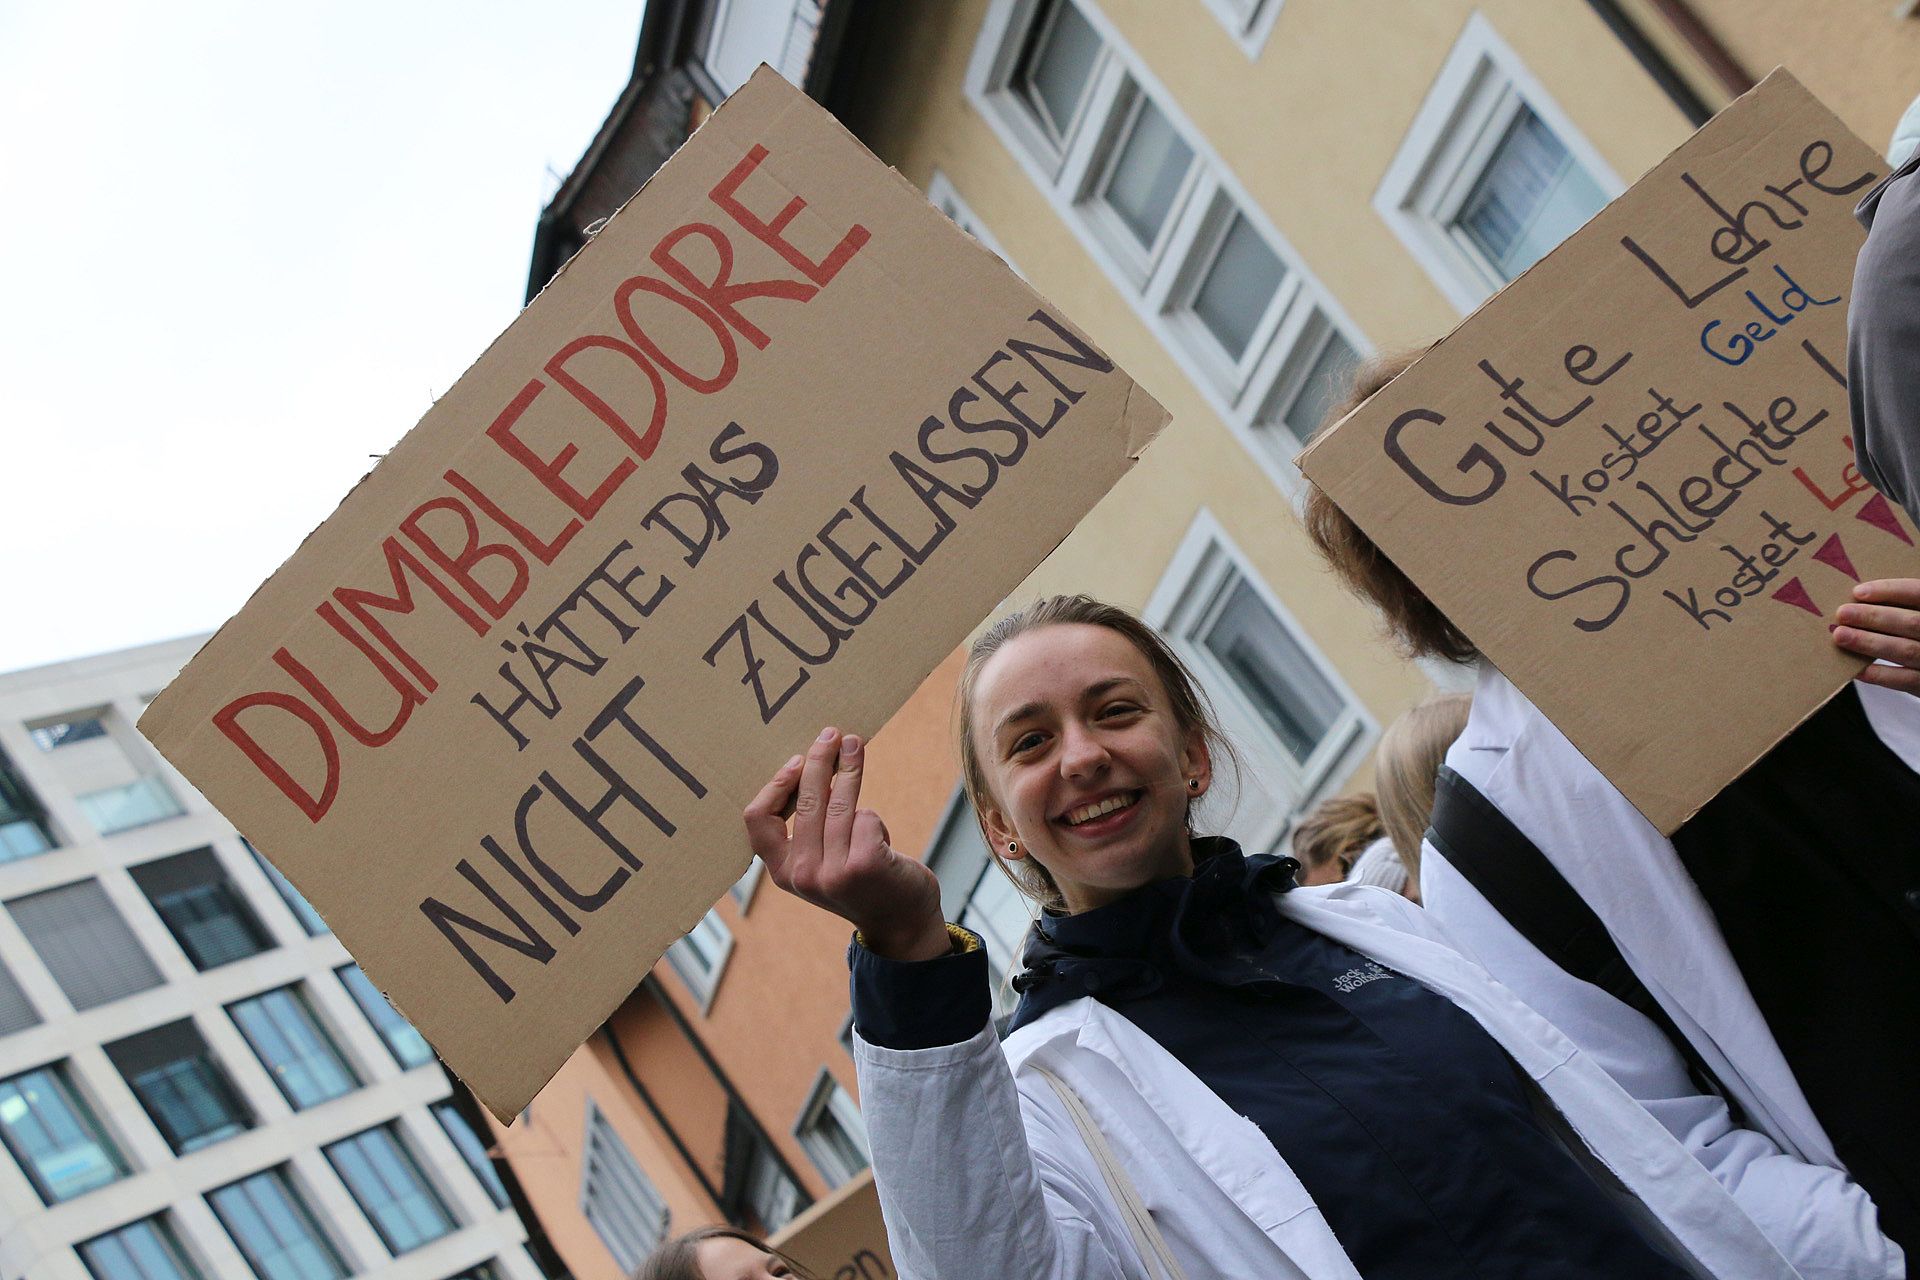 DUMBLEDORE
HÄTTE DAS
NICHT ZUGELASSEN
Gute Lehre
kostet Geld
Schlechte
kostet
Jack
Wolfskin